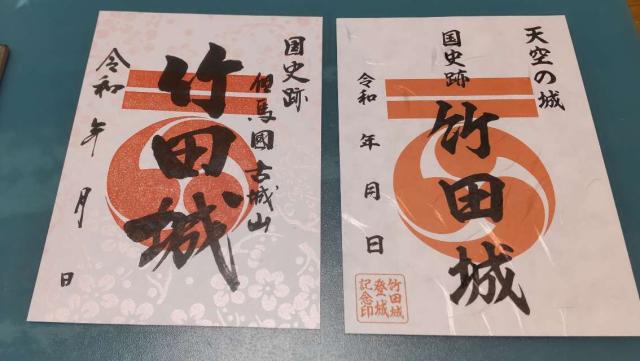 国史跡
但馬國 古城山
竹田城
令和 年 月 日
天空の城
国史跡
竹田城
令和 年 月 日
竹田城
登城
記念印